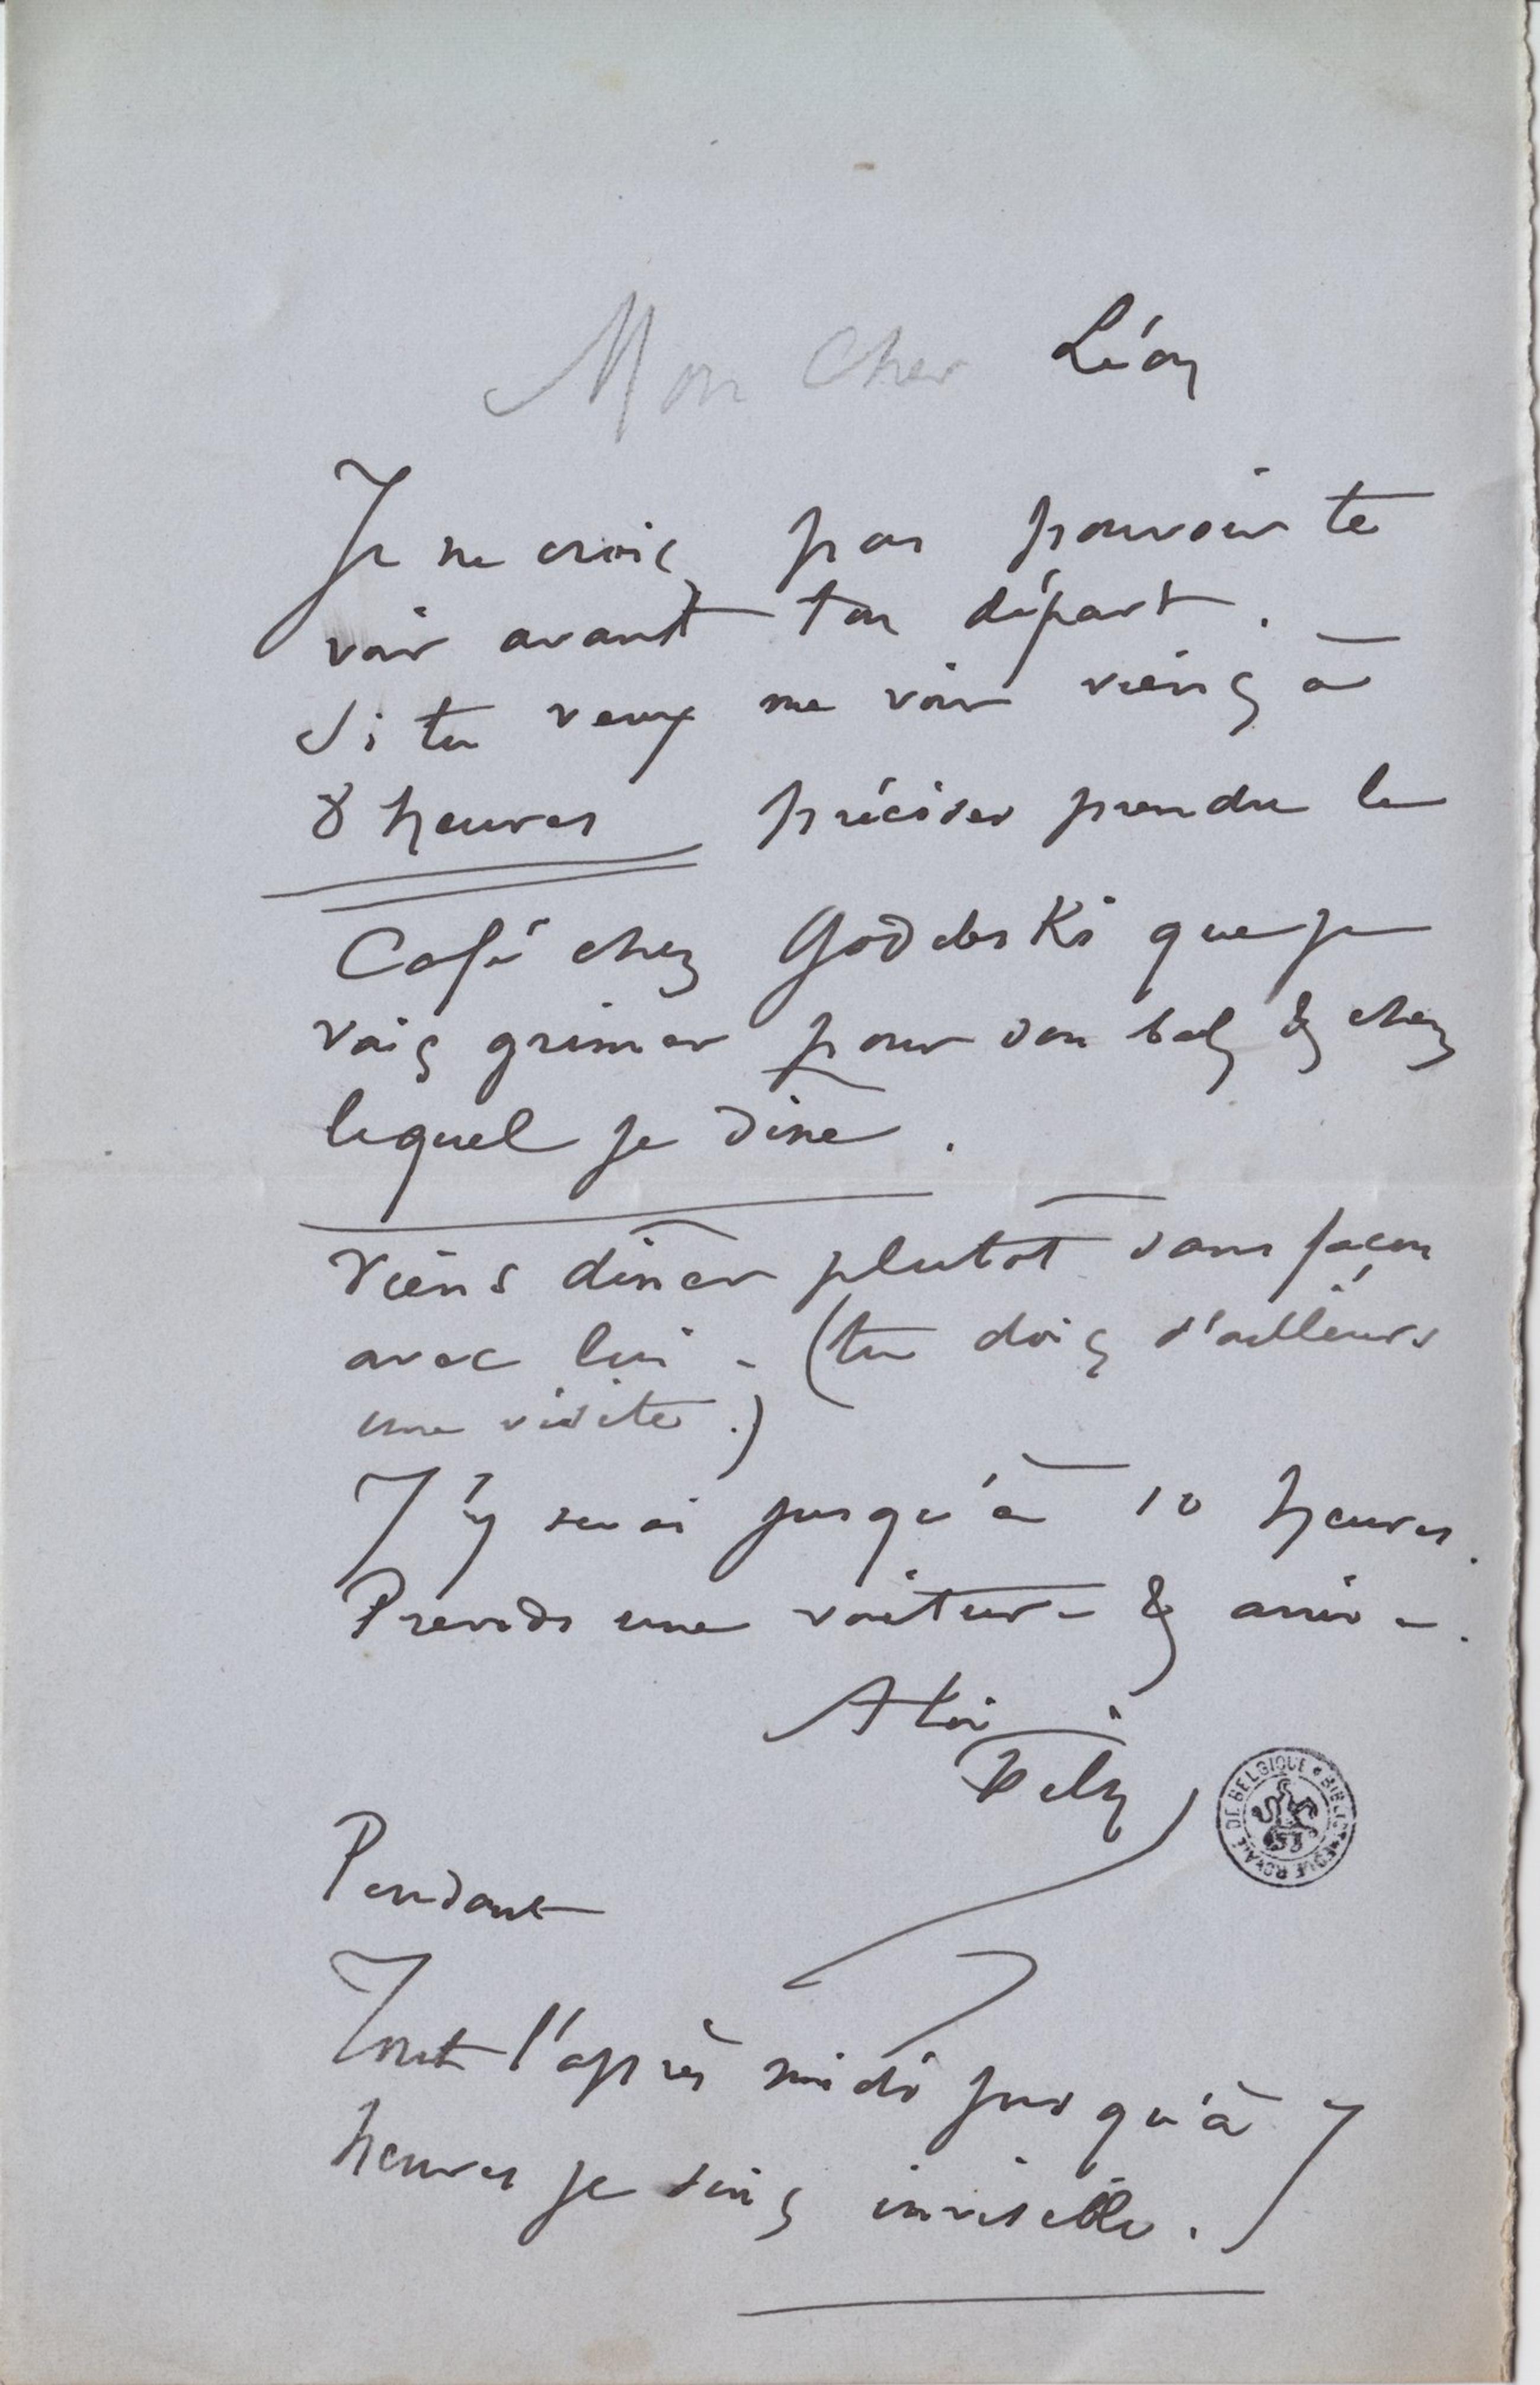 Mon Cher Léon
Je ne crois pas pouvoir te
voir avant ton départ.
Si tu veux me voir viens à
8 heures précises prendre le
Café chez Godebski que je
vais grimer pour son bal & chez
lequel je dîne.
Viens dîner plutôt sans façon
avec lui - (tu dois d'ailleurs
une visite.)
J'y serai jusqu'à 10 heures.
Prends une voiture & arrive.
A toi
Fély
BIBLIOTHÈQUE ROYALE DE BELGIQUE
Pendant
Tout l'après midi jusqu'à 7
heures je suis invisible.